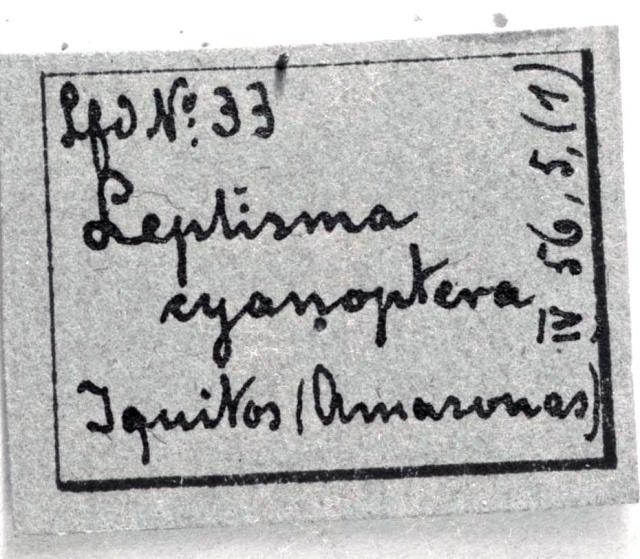 Lfd Nº. 33
Leptisma
cyanoptera
Iquitos (Amasonas)
IV 56, 5, (1)